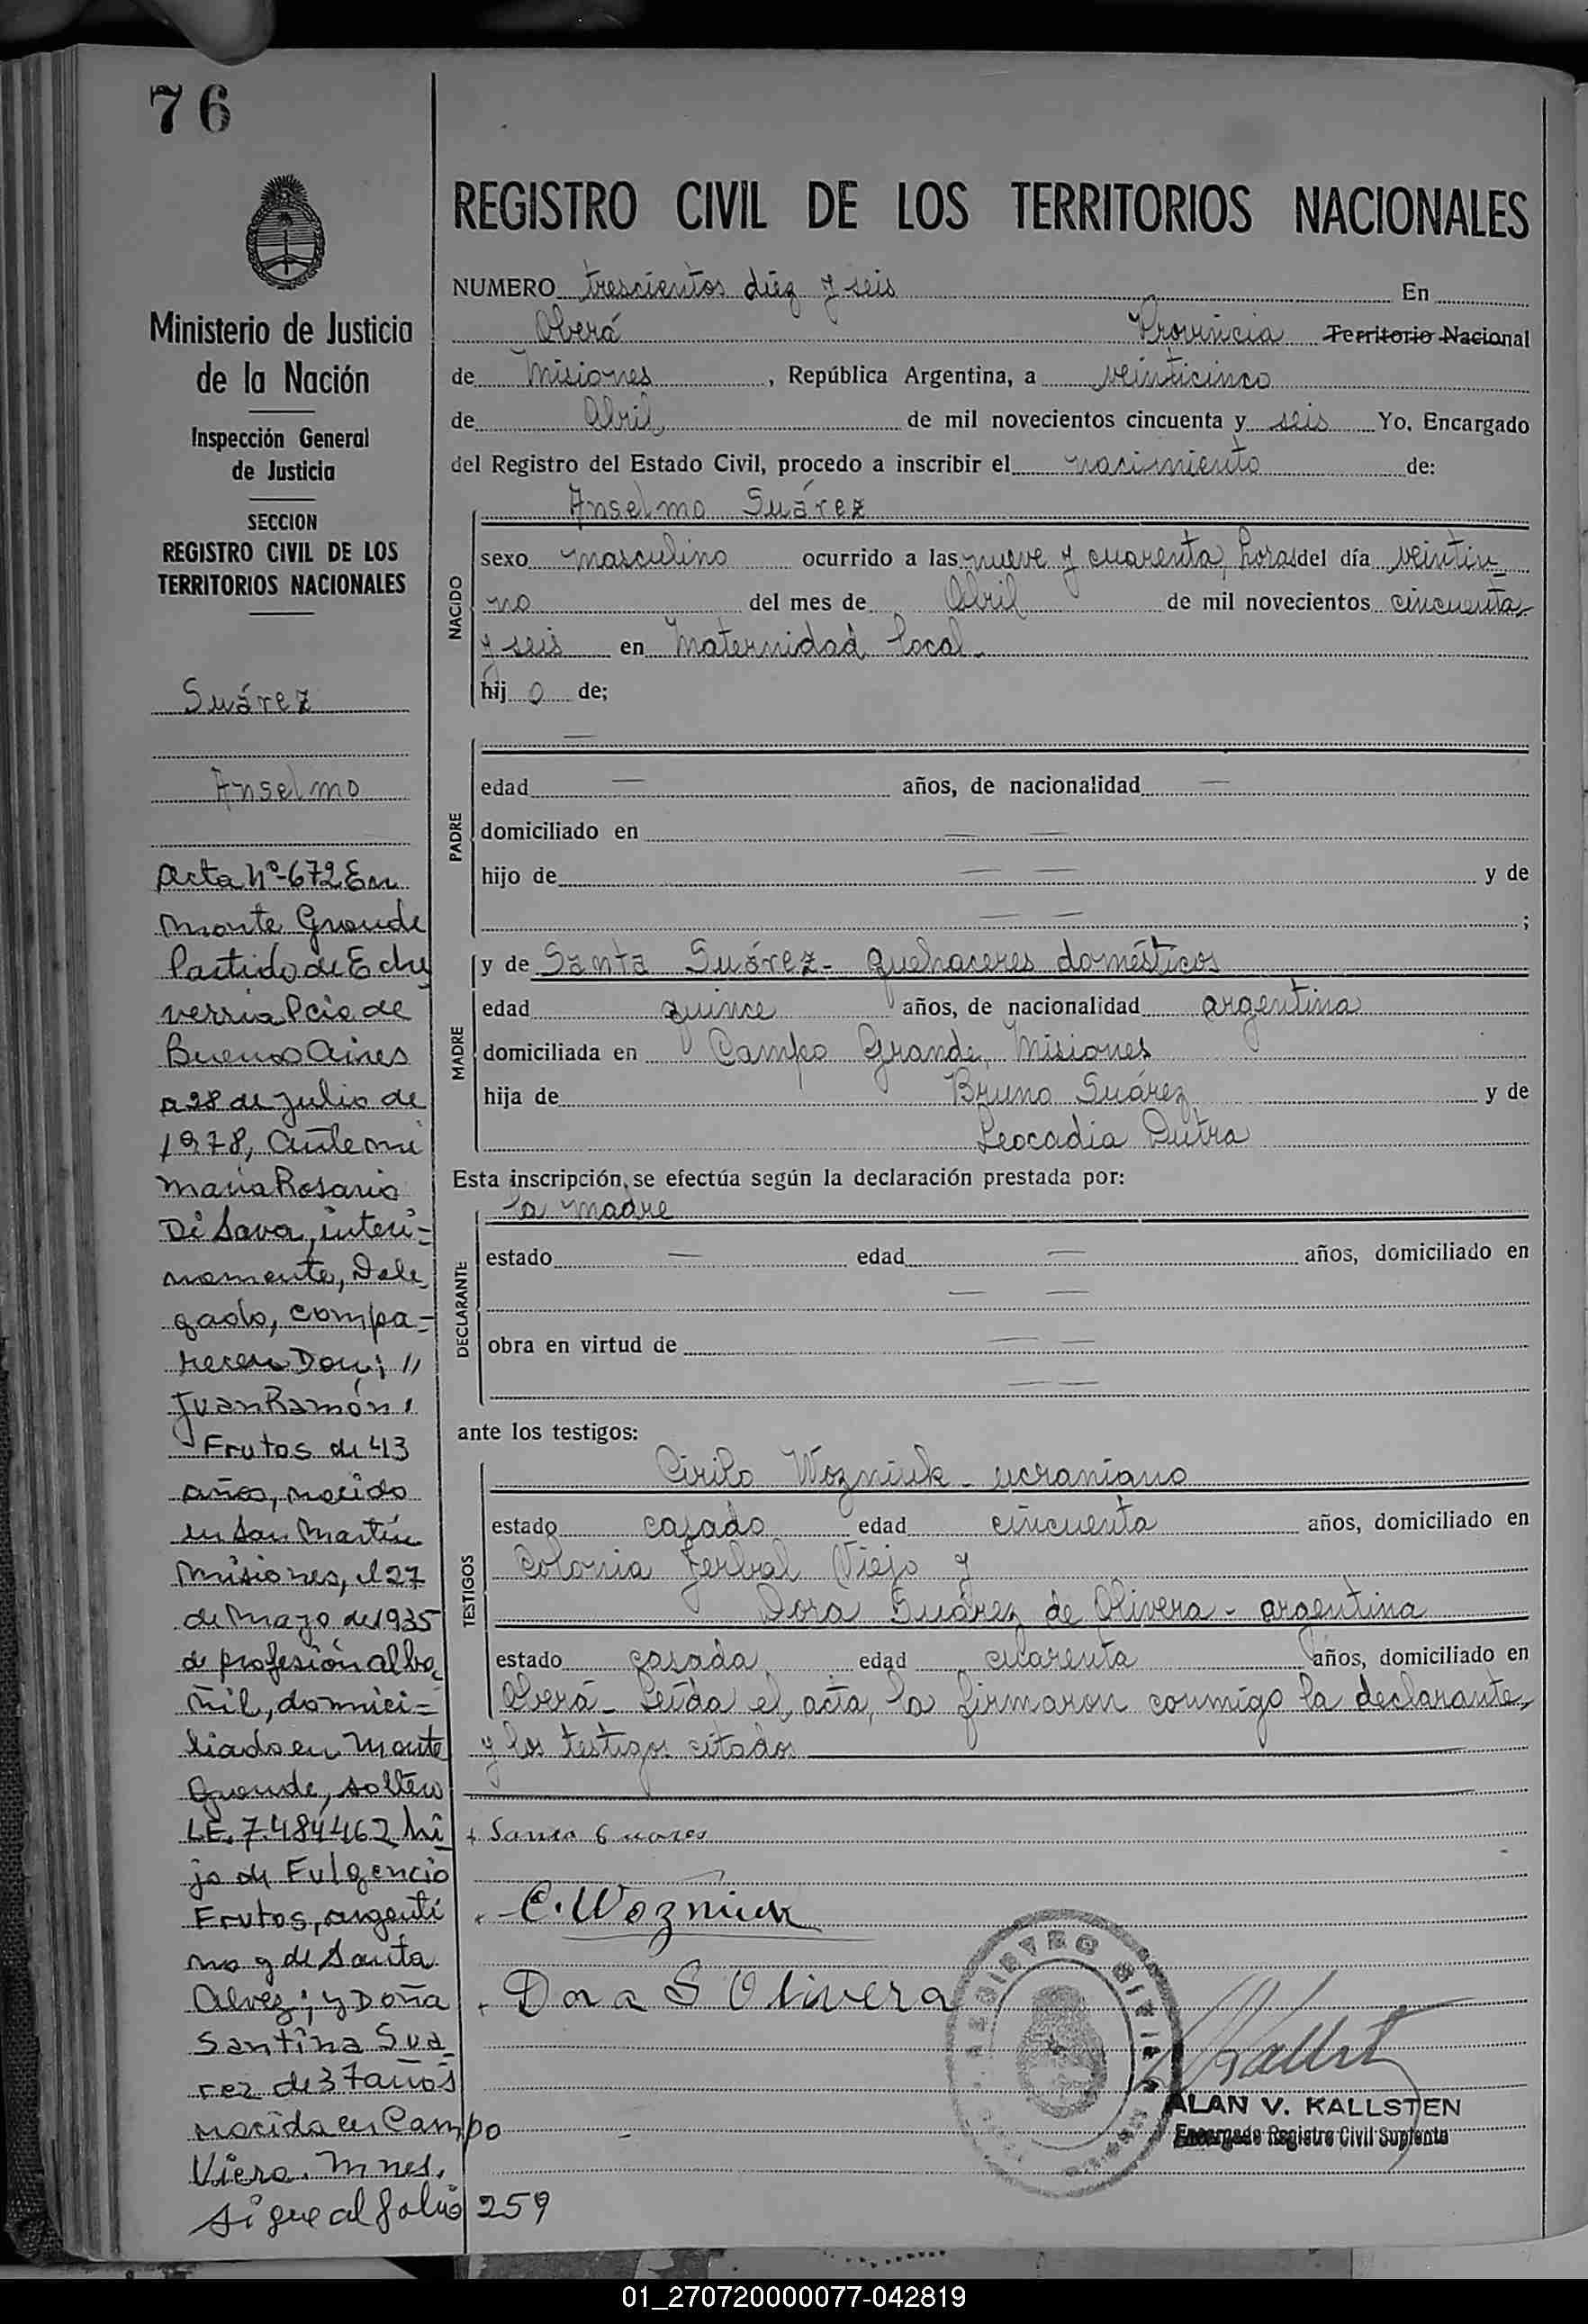 76
Ministerio de Justicia
de la Nación
Inspección General
de Justicia
SECCION
REGISTRO CIVIL DE LOS
TERRITORIOS NACIONALES
Suárez
Anselmo
Acta Nº-672 En
Monte Grande
Partido de Eche
verria Pcia de
Buenos Aires
a 28 de julio de
1978, Ante mi
Maria Rosario
Di Sava, interi=
namente, Dele
gado, compa=
recen Don; "
Juan Ramón
Frutos de 43
años, nacido
en San Martín
Misiones, el 27
de Mayo de 1935
de profesión alba
ñil, domici=
liado en Monte
Grande, soltero
L.E. 7.484462 hi
jo de Fulgencio
Frutos, argenti
no y de Santa
Alvez; y Doña
Santina Sua
rez de 37 años
nacida en Campo
Viera. Mnes.
sigue al folio 259
REGISTRO CIVIL DE LOS TERRITORIOS NACIONALES
NUMERO trescientos diez y seis En
Oberá Provincia Territorio Nacional
de Misiones, República Argentina, a veinticinco
de Abril de mil novecientos cincuenta y seis Yo, Encargado
del Registro del Estado Civil, procedo a inscribir el nacimiento de:
NACIDO
Anselmo Suárez
sexo masculino ocurrido a las nueve y cuarenta horas del día veintiu
no del mes de Abril de mil novecientos cincuenta
y seis en Maternidad local.
hij o de;
PADRE
edad — años, de nacionalidad —
domiciliado en — —
hijo de — — y de
— — ;
MADRE
y de Santa Suárez - quehaceres domésticos
edad quince años, de nacionalidad argentina
domiciliada en Campo Grande, Misiones
hija de Bruno Suárez y de
Leocadia Dutra
Esta inscripción, se efectúa según la declaración prestada por:
DECLARANTE
la madre
estado — edad — años, domiciliado en
— —
obra en virtud de — —
— —
ante los testigos:
TESTIGOS
Cirilo Wozniuk - ucraniano
estado casado edad cincuenta años, domiciliado en
Colonia Yerbal Viejo y
Dora Suárez de Olivera - argentina
estado casada edad cuarenta años, domiciliado en
Oberá - Leída el acta, la firmaron conmigo la declarante,
y los testigos citados
+ Santa Suares
C. Wozniuk
Dora S Olivera
REGISTRO CIVIL
Kallst
ALAN V. KALLSTEN
Encargado Registro Civil Suplente
01_270720000077-042819